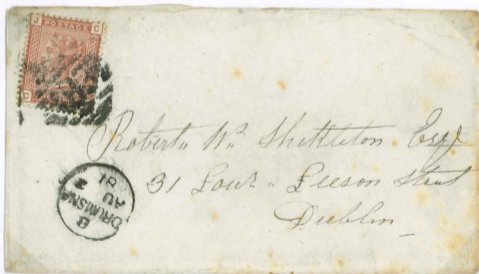 J C
POSTAGE
Robert Wm Shekleton Esqr
31 Lowr Leeson Street
Dublin
B
DRUMSNA
AU 2
81